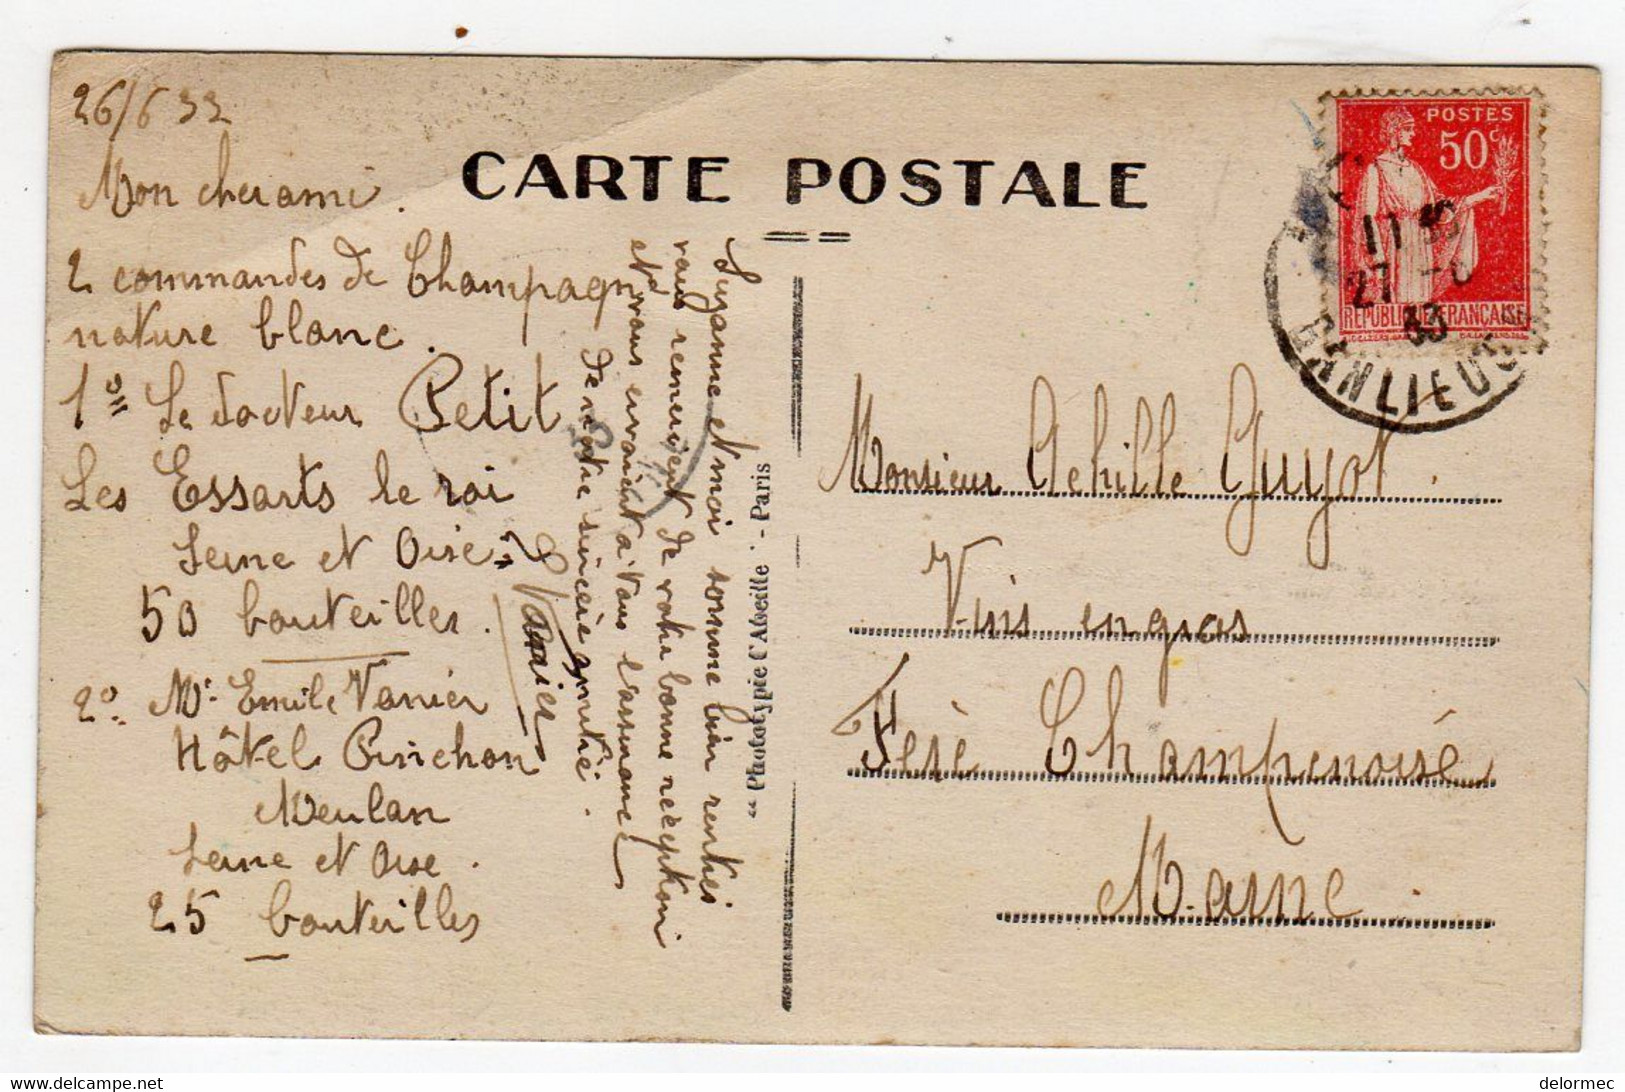 26/6 33
Mon cher ami.
2 commandes de Champagne
nature blanc.
1º= Le docteur Petit
Les Essarts le roi
Seine et Oise.
50 bouteilles.
2º. Mr. Emile Vanier
Hôtel Pinchon
Meulan
Seine et Oise.
25 bouteilles
Suzanne et moi somme bien rentrés
vous remercient de votre bonne reception
et vous envoient à tous l'assurance
de notre sincère amitié.
E Vanier
CARTE POSTALE
"Phototypie l'Abeille". - Paris
POSTES
50c
RÉPUBLIQUE FRANÇAISE
11 35
27 -6
33
BANLIEUE
Monsieur Achille Guyot.
Vins en gros
Fère Champenoise
Marne.
delormec